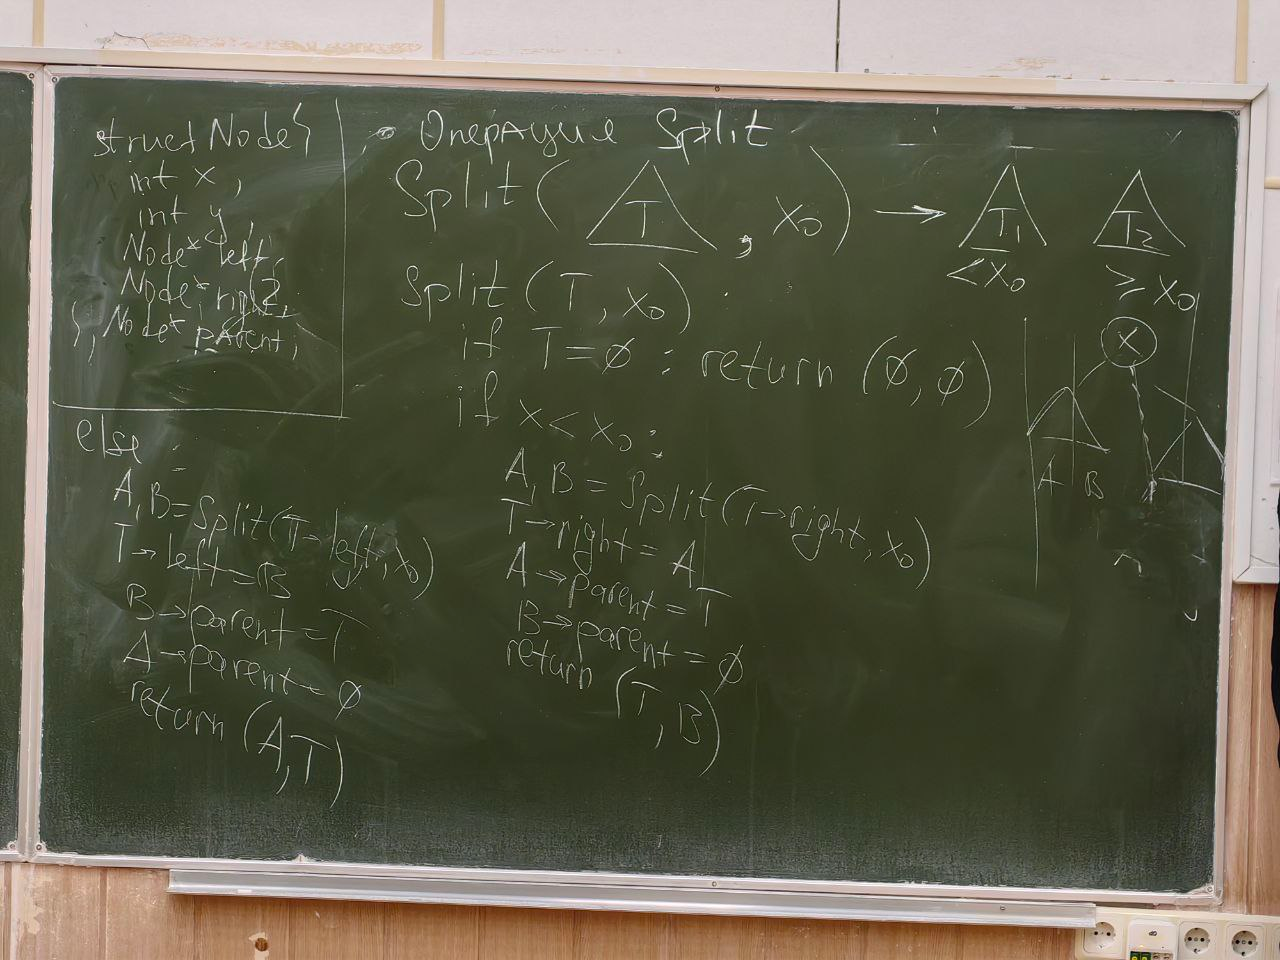 struct Node {
int x,
int y,
Node* left,
Node* right,
Node* parent;
};
• Операция Split
Split( T , x₀) → T₁ T₂
< x₀ ⩾ x₀
Split (T, x₀) :
if T = ∅ : return (∅, ∅)
if x < x₀ :
A, B = Split(T→right, x₀)
T→right = A
A→parent = T
B→parent = ∅
return (T, B)
else :
A, B = Split(T→left, x₀)
T→left = B
B→parent = T
A→parent = ∅
return (A, T)
x
A B